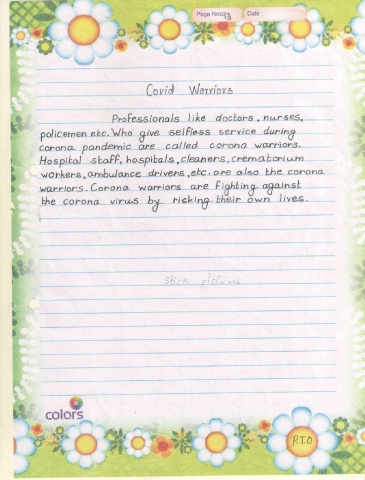 Page No.: 13 Date :
Covid Warriors
Professionals like doctors, nurses,
policemen etc. Who give selfless service during
corona pandemic are called corona warriors.
Hospital staff, hospitals, cleaners, crematorium
workers, ambulance drivers, etc. are also the corona
warriors. Corona warriors are fighting against
the corona virus by risking their own lives.
stick pictures
colors
P.T.O